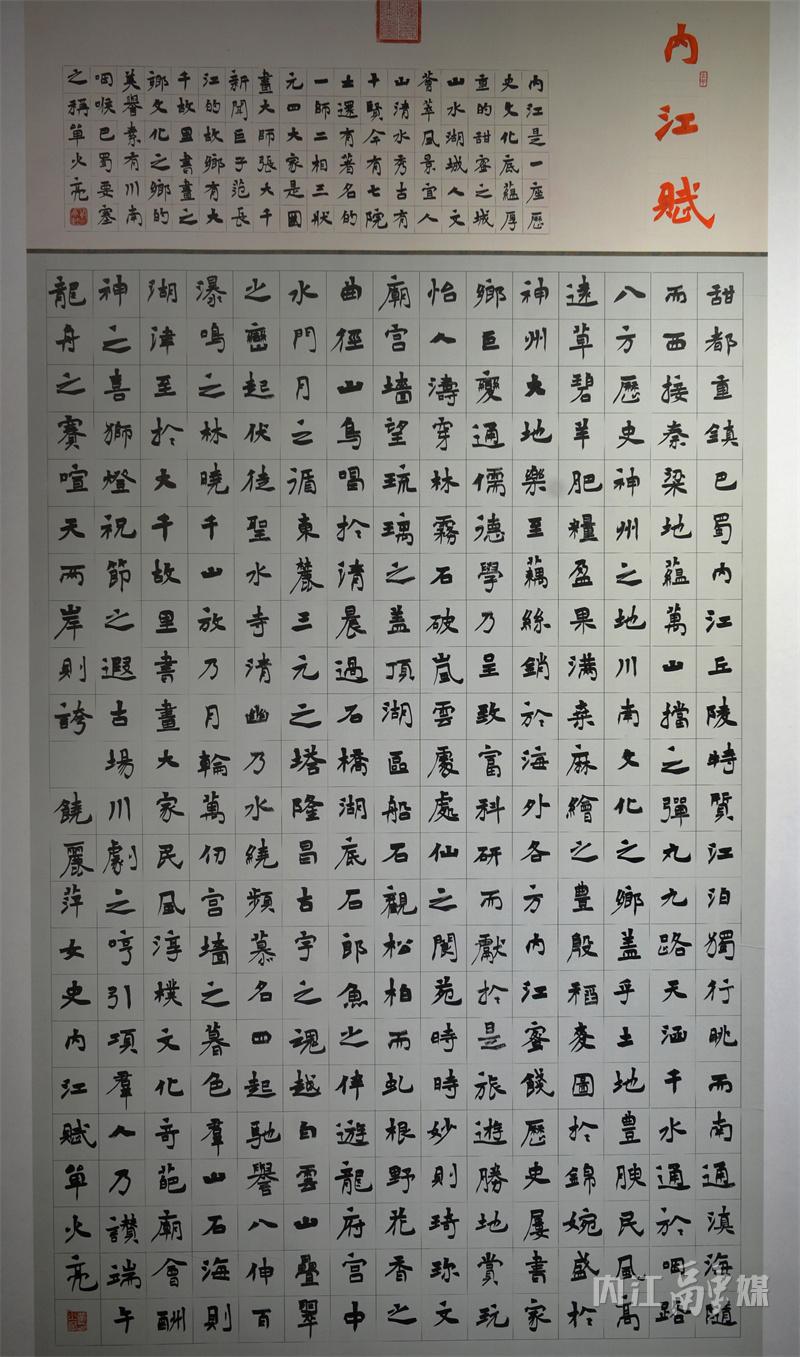 内江赋
内江是一座歷
史文化底蘊厚
重的甜蜜之城
山水湖城人文
薈萃風景宜人
山清水秀古有
十賢今有七院
士還有著名的
一師二相三狀
元四大家是國
畫大師張大千
新聞巨子范長
江的故鄉有大
千故里書畫之
鄉文化之鄉的
美譽素有川南
咽喉巴蜀要塞
之稱單火亮
甜都重鎮巴蜀内江丘陵特質江泊獨行眺而南通滇海隨
而西接秦梁地蘊萬山擋之彈丸九路天涵千水通於咽路
八方歷史神州之地川南文化之鄉蓋乎土地豐腴民風高
遠草碧羊肥糧盈果滿桑麻繪之豊殷稻麥圖於錦婉盛於
神州大地樂至藕絲銷於海外各方内江蜜餞歷史屢書家
鄉巨變通儒德學乃呈致富科研而獻於是旅遊勝地賞玩
怡人濤穿林霧石破嵐雲處處仙之閬苑時時妙則琦珍文
廟宫墻望琉璃之蓋頂湖區船石觀松柏而虬根野花香之
曲徑山鳥唱於清晨過石橋湖底石郎魚之伴遊龍府宫中
水門月之循東麓三元之塔隆昌古宇之魂越白雲山疊翠
之巒起伏徒聖水寺清幽乃水繞頻慕名四起馳譽八伸百
瀑鳴之林曉千山放乃月輪萬仞宫墻之暮色羣山石海則
湖津至於大千故里書畫大家民風淳樸文化奇葩廟會酬
神之喜獅燈祝節之遐古場川劇之哼引項羣人乃讚端午
龍舟之賽喧天兩岸則誇 饒麗萍女史内江賦單火亮
内江融媒